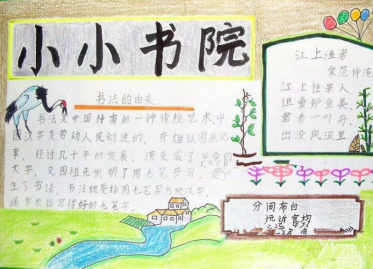 小小书院
书法的由来
书法是中国特有的一种传统艺术,中
国文字是劳动人民创造的,开始以图画记
事,经过几千年的发展,演变成了
文字,又因祖先发明了用毛笔书写,便产
生了书法,书法就是指用毛笔书写汉字,
江上渔者
宋 范仲淹
江上往来人,
但爱鲈鱼美。
君看一叶舟,
出没风波里。
分间布白
远近宜均